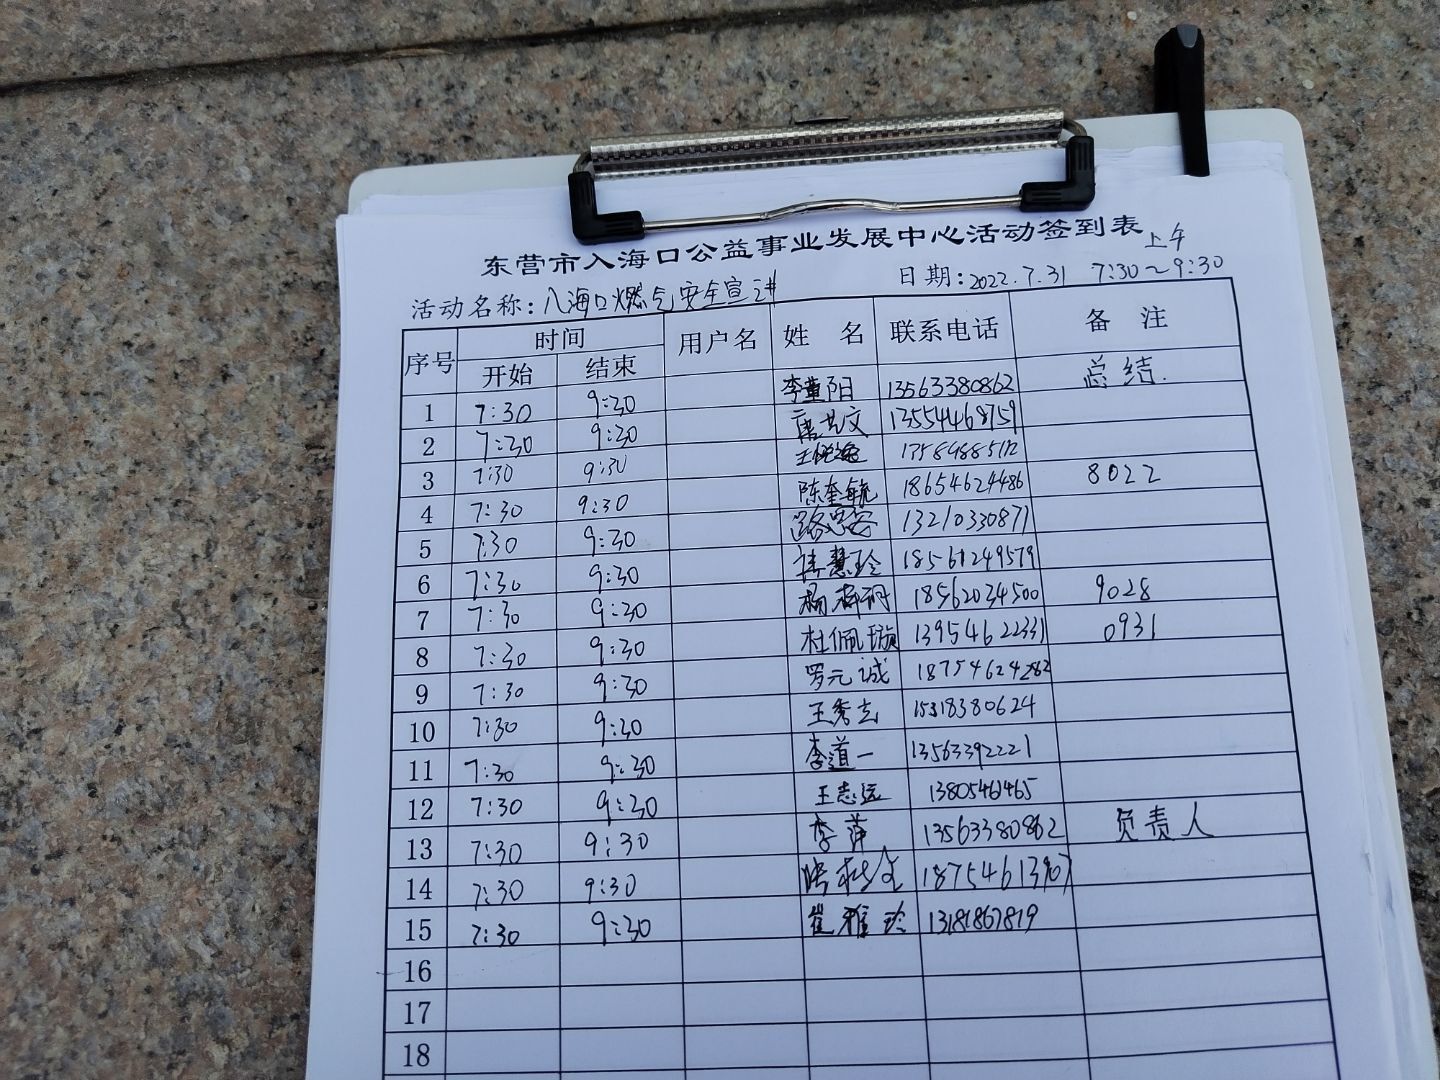 东营市入海口公益事业发展中心活动签到表
上午
活动名称：入海口燃气安全宣讲 日期：2022.7.31 7:30～9:30
序号 时间 用户名 姓 名 联系电话 备 注
开始 结束
1 7:30 9:30 李童阳 13563380862 总结.
2 7:30 9:30 13554468759
3 7:30 9:30 8022
4 7:30 9:30 陈奎毓 18654624486
5 7:30 9:30 13210330871
6 7:30 9:30 慧玲 18561249579
7 7:30 9:30 杨 18562034500 9028
8 7:30 9:30 杜佩璇 13954622331 0931
9 7:30 9:30 罗元诚 18754624282
10 7:30 9:30 王秀 15318380624
11 7:30 9:30 李道一 13563392221
12 7:30 9:30 王志远 13805461465
13 7:30 9:30 李萍 13563380862 负责人
14 7:30 9:30 18754613907
15 7:30 9:30 崔雅玲 13181867819
16
17
18